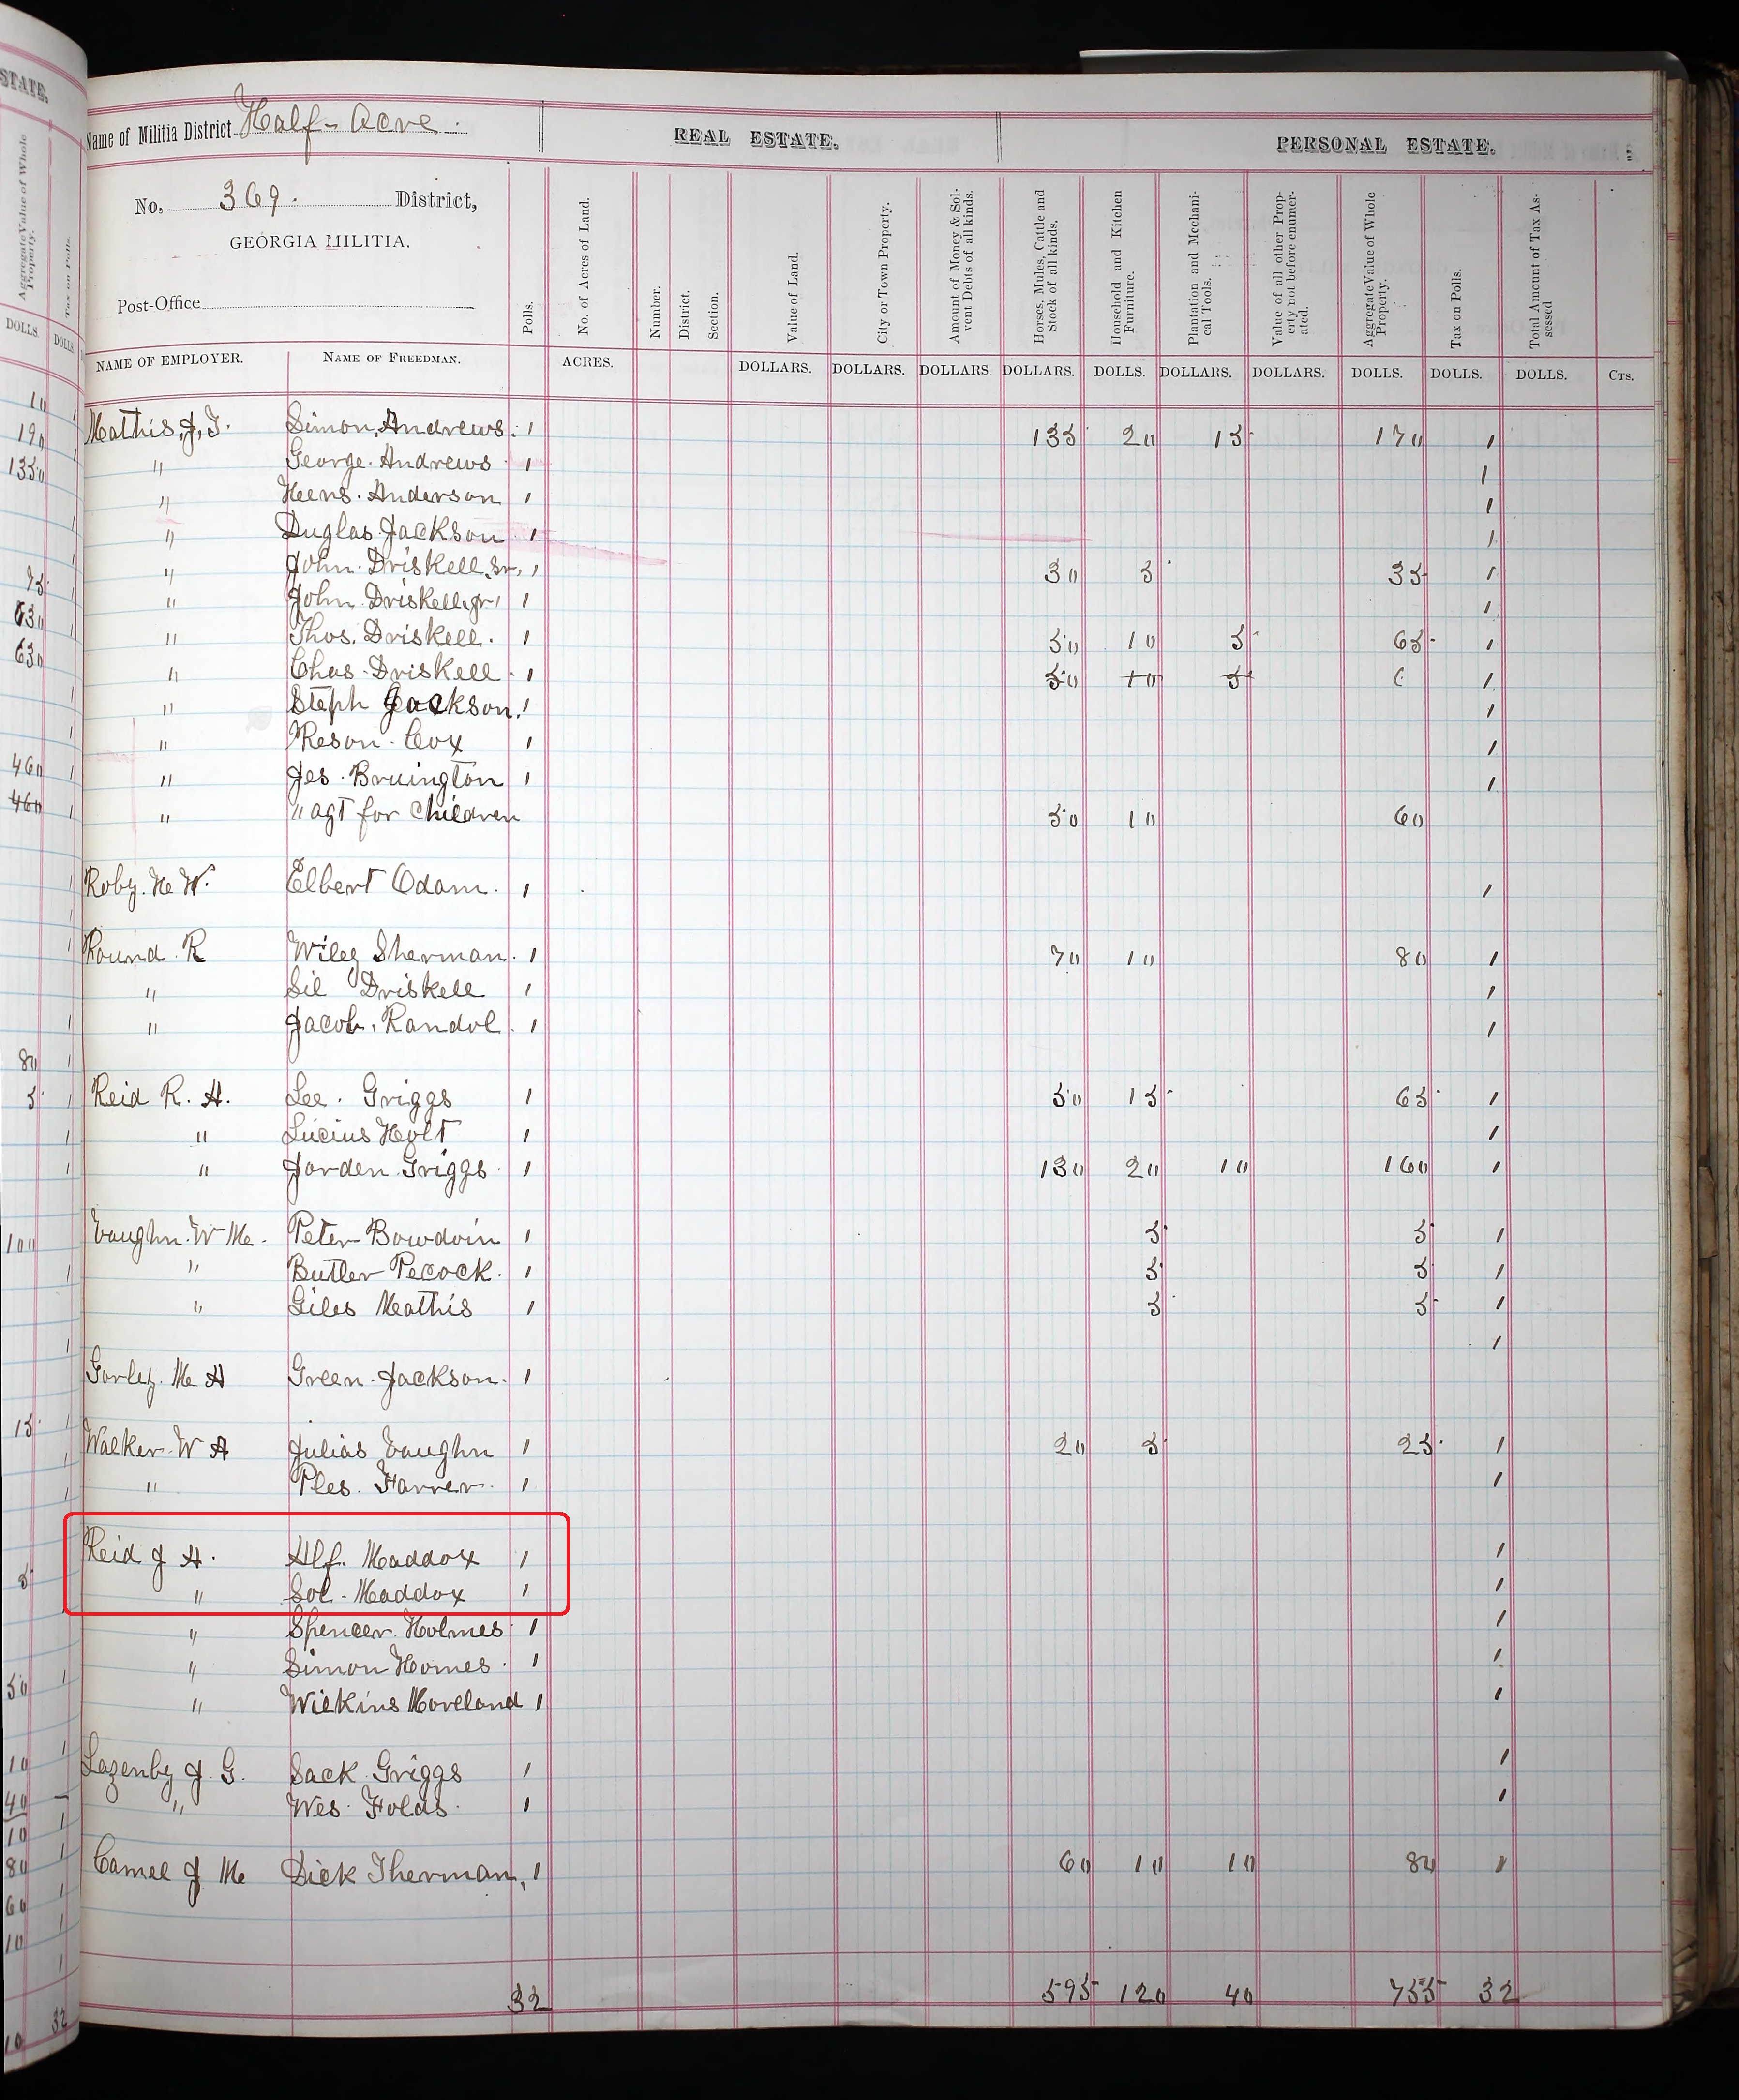 STATE.
Aggregate Value of Whole Property.
Tax on Polls.
DOLLS.
DOLLS
10
190
1350
75
630
630
460
460
80
5
100
15
5
50
10
40
10
80
60
10
10 32
Name of Militia District Half-Acre. REAL ESTATE. PERSONAL ESTATE.
No. 369. District,
GEORGIA MILITIA.
Post-Office
Polls.
No. of Acres of Land.
Number.
District.
Section.
Value of Land.
City or Town Property.
Amount of Money & Solvent Debts of all kinds.
Horses, Mules, Cattle and Stock of all kinds.
Household and Kitchen Furniture.
Plantation and Mechanical Tools.
Value of all other Property not before enumerated.
Aggregate Value of Whole Property.
Tax on Polls.
Total Amount of Tax Assessed
NAME OF EMPLOYER. NAME OF FREEDMAN. ACRES. DOLLARS. DOLLARS. DOLLARS DOLLARS. DOLLS. DOLLARS. DOLLARS. DOLLS. DOLLS. DOLLS. CTS.
Mathis, J, T. Simon Andrews. 1 135 20 15 170 1
" George Andrews 1 1
" Hens. Anderson 1 1
" Duglas Jackson 1 1
" John Driskell, Sr, 1 30 5 35 1
" John Driskell, Jr, 1 1
" Thos. Driskell. 1 50 10 5 65 1
" Chas. Driskell 1 50 10 5 6 1
" Steph Jackson. 1 1
" Reson Cox 1 1
" Jes. Bruington 1 1
" " agt for Children 50 10 60
Roby. H W. Elbert Odam. 1 1
Round R Wiley Sherman. 1 70 10 80 1
" Sil Driskell 1 1
" Jacob. Randol. 1 1
Reid R. A. Lee. Griggs 1 50 15 65 1
" Lucius Holt 1 1
" Jorden Griggs 1 130 20 10 160 1
Vaughn. W M. Peter Bowdoin 1 5 5 1
" Butler Pecock. 1 5 5 1
" Giles Mathis 1 5 5 1
1
Gorley. M A Green Jackson. 1
Walker W A Julias Vaughn 1 20 5 25 1
" Ples. Farrer. 1 1
Reid J A. Alf. Maddox 1 1
" Sol. Maddox 1 1
" Spencer Holmes 1 1
" Simon Homes. 1 1
" Wilkins Moreland 1 1
Lazenby J. G. Sack Griggs 1 1
" Wes. Folds. 1 1
Camel J M Dick Therman, 1 60 10 10 80 1
32 595 120 40 755 32